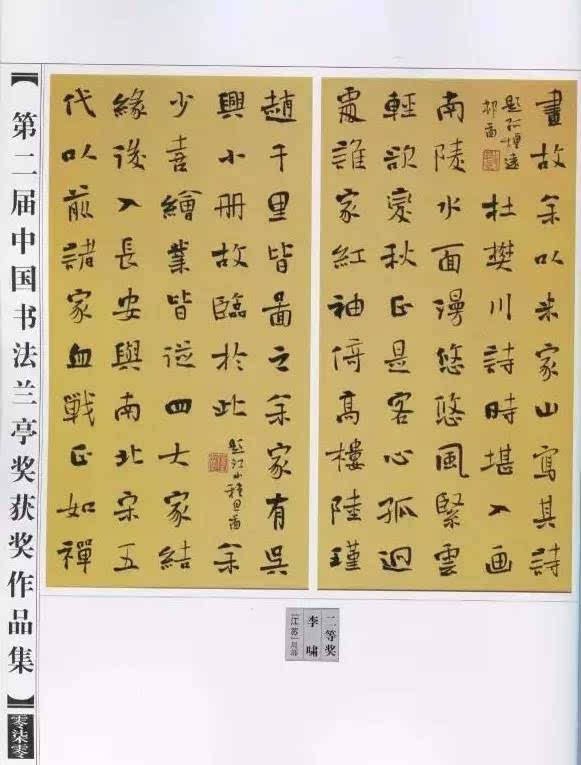 畫故余以米家山寫其詩
杜樊川詩時堪入画
南陵水面漫悠悠風緊雲
輕欲變秋正是客心孤迥
處誰家紅袖倚高樓陸瑾
趙千里皆啚之余家有吳
興小冊故臨於此
題江山秋思啚
余
少喜繪業皆從四大家結
緣後入長安與南北宋五
代以前諸家血戰正如禪
【第二届中国书法兰亭奖获奖作品集】
零柒零
二等奖
李啸
[江苏]局部